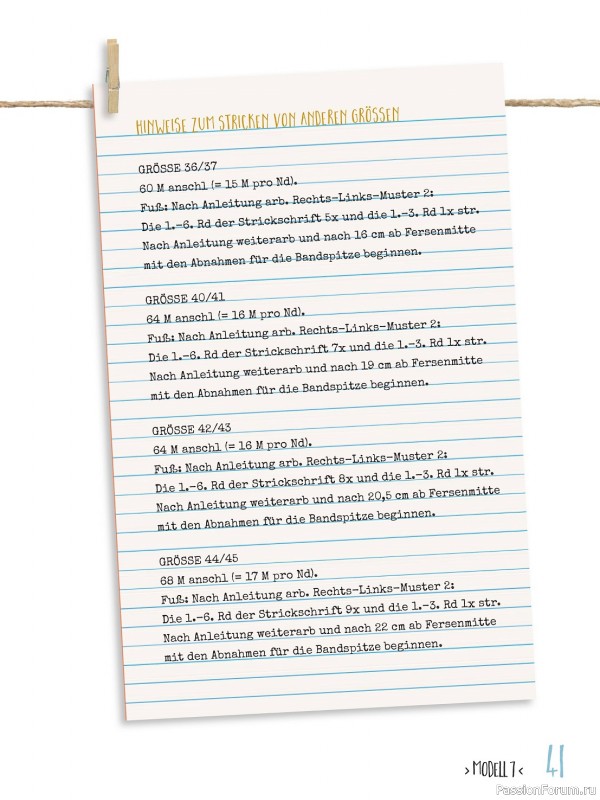 HINWEISE ZUM STRICKEN VON ANDEREN GRÖSSEN
GRÖSSE 36/37
60 M anschl (= 15 M pro Nd).
Fuß: Nach Anleitung arb. Rechts-Links-Muster 2:
Die 1.–6. Rd der Strickschrift 5x und die 1.–3. Rd 1x str.
Nach Anleitung weiterarb und nach 16 cm ab Fersenmitte
mit den Abnahmen für die Bandspitze beginnen.
GRÖSSE 40/41
64 M anschl (= 16 M pro Nd).
Fuß: Nach Anleitung arb. Rechts-Links-Muster 2:
Die 1.–6. Rd der Strickschrift 7x und die 1.–3. Rd 1x str.
Nach Anleitung weiterarb und nach 19 cm ab Fersenmitte
mit den Abnahmen für die Bandspitze beginnen.
GRÖSSE 42/43
64 M anschl (= 16 M pro Nd).
Fuß: Nach Anleitung arb. Rechts-Links-Muster 2:
Die 1.–6. Rd der Strickschrift 8x und die 1.–3. Rd 1x str.
Nach Anleitung weiterarb und nach 20,5 cm ab Fersenmitte
mit den Abnahmen für die Bandspitze beginnen.
GRÖSSE 44/45
68 M anschl (= 17 M pro Nd).
Fuß: Nach Anleitung arb. Rechts-Links-Muster 2:
Die 1.–6. Rd der Strickschrift 9x und die 1.–3. Rd 1x str.
Nach Anleitung weiterarb und nach 22 cm ab Fersenmitte
mit den Abnahmen für die Bandspitze beginnen.
> MODELL 7 < 41
PassionForum.ru